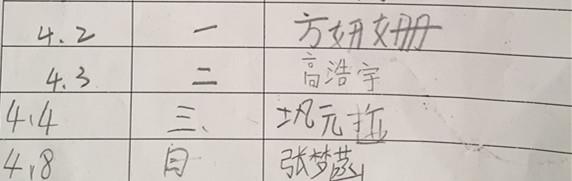 4.2 一 方妍姗
4.3 二 高浩宇
4.4 三、 元
4,8 日 张梦蕊